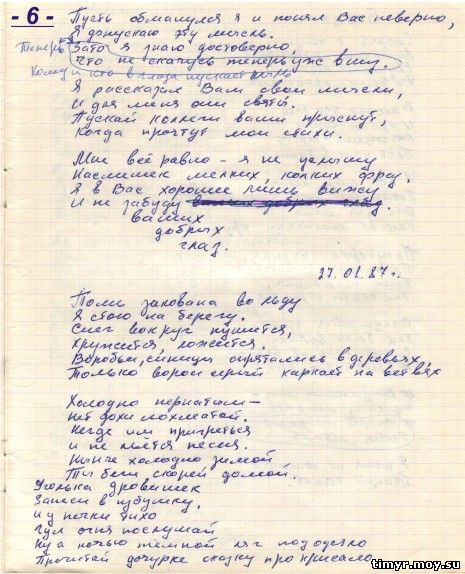 - 6 -
Пусть обманулся я и понял Вас неверно,
Я допускаю эту мысль.
Теперь Зато я знаю достоверно,
Что не скачусь теперь уже вниз.
Кому и что в глаза пускает пыль
Я рассказал Вам свои мысли,
И для меня они святы.
Пускай коллеги ваши прыснут,
Когда прочтут мои стихи.
Мне всё равно - я не услышу
Насмешек мелких, колких фраз,
Я в Вас хорошее лишь вижу
И не забуду ваших добрых глаз.
ваших
добрых
глаз.
27.01.87 г.
закована во льду
Я стою на берегу.
Снег вокруг пушится,
Кружится, ложится.
Воробьи, синицы спрятались в деревьях,
Только ворон серый каркает на ветвях
Холодно пернатым —
Нет дохи лохматой.
Негде им пригреться
и не поётся песня.
Нынче холодно зимой
Ты беги скорей домой.
Уголька дровишек
Занеси в избушку,
и у печки тихо
Гул огня послушай
Ну а ночью тёмной ляг под одеяло
Прочитай дочурке сказку про
timyr.moy.su